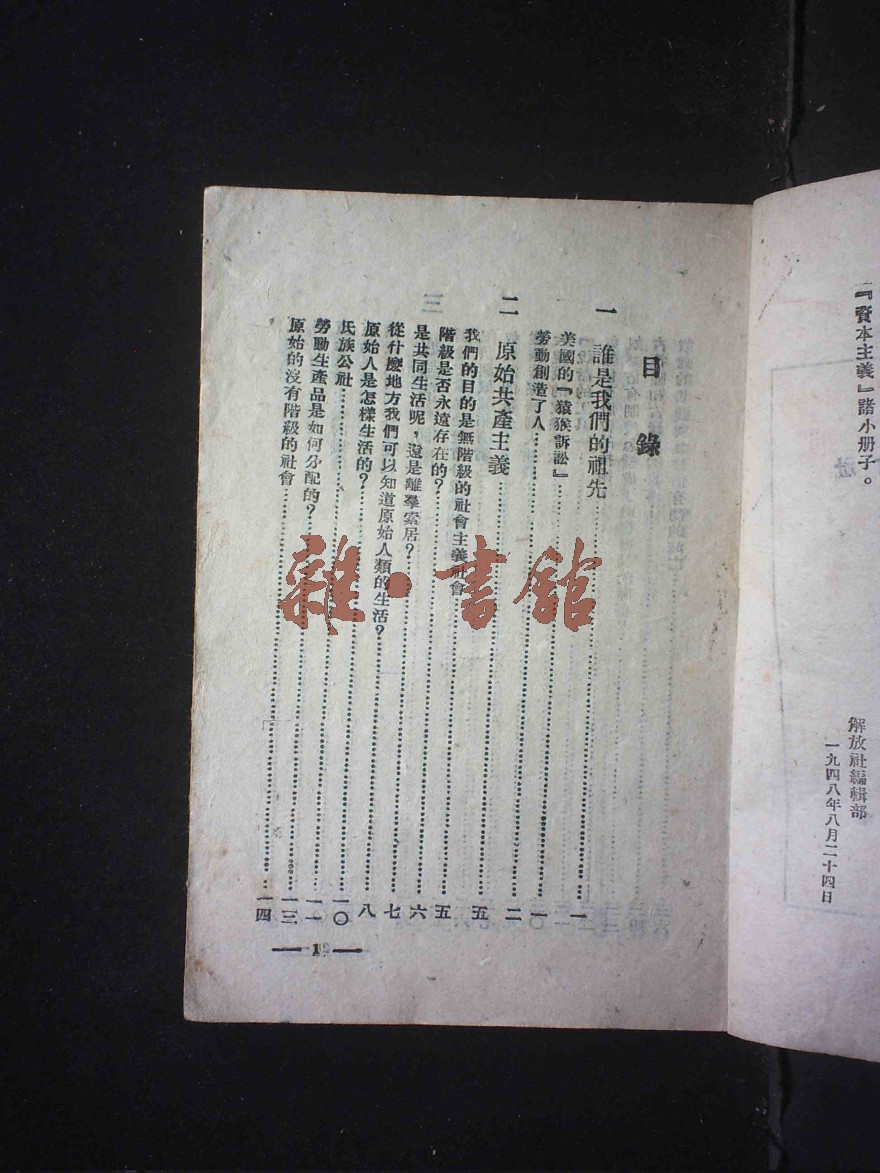 『資本主義』諸小册子。
解放社編輯部
一九四八年八月二十四日
目錄
一 誰是我們的祖先……一
美國的『猿猴訴訟』……一
勞動創造了人……二
二 原始共產主義……五
我們的目的是無階級的社會主義社會……五
階級是否永遠存在的?……六
是共同生活呢,還是離羣索居?……七
從什麼地方我們可以知道原始人類的生活?……八
原始人是怎樣生活的?……一〇
氏族公社……一一
勞動生產品是如何分配的?……一三
原始的沒有階級的社會……一四
1
雜·書館